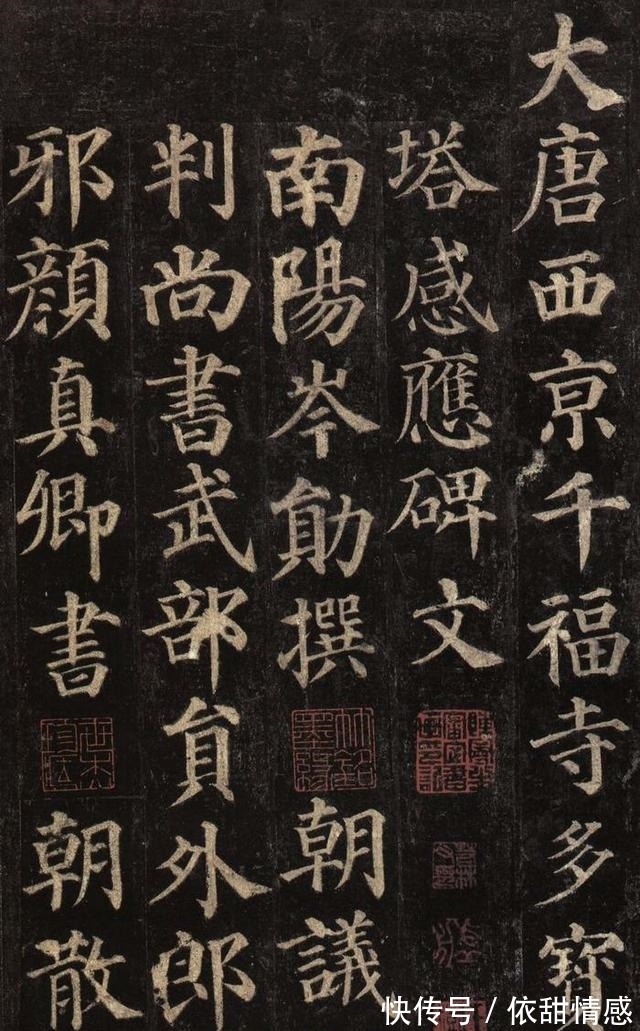 大唐西京千福寺多寶
塔感應碑文
南陽岑勛撰 朝議
判尚書武部員外郎
邪顏真卿書 朝散
快传号／依甜情感